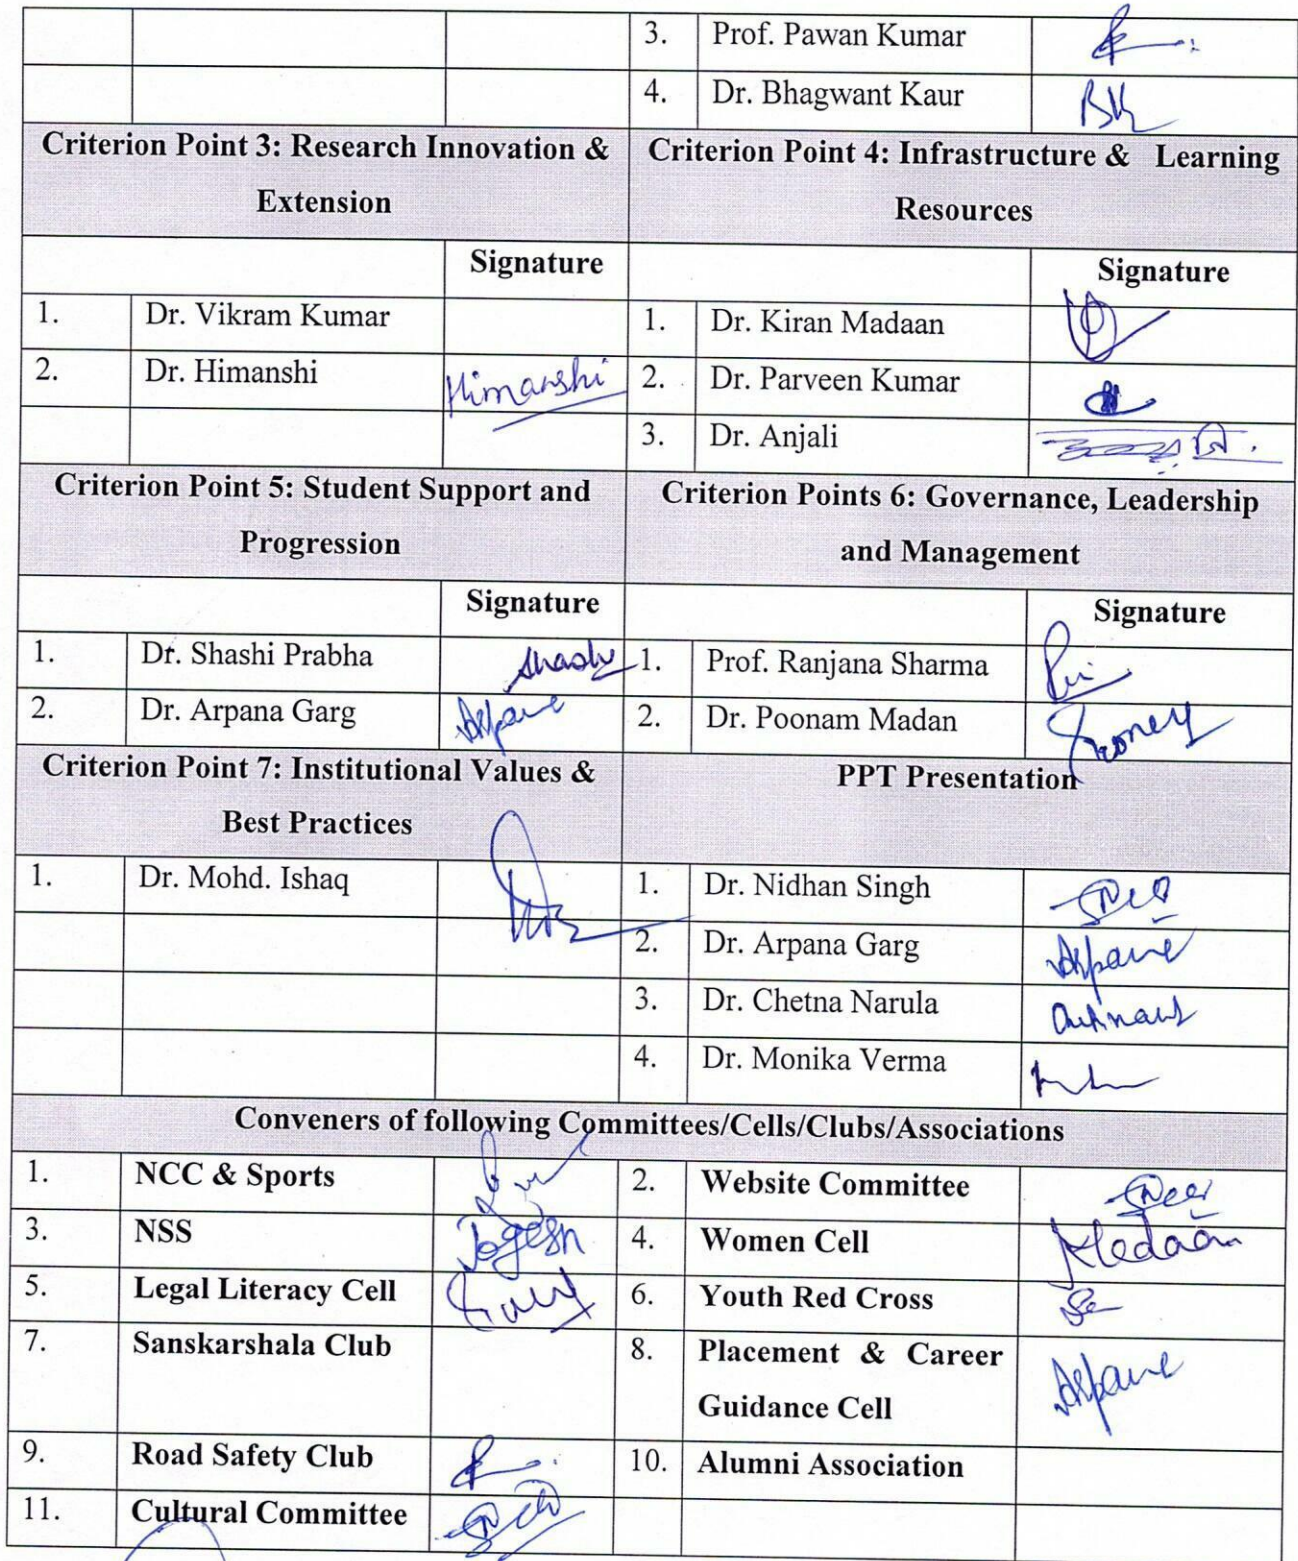 3. Prof. Pawan Kumar
4. Dr. Bhagwant Kaur BK
Criterion Point 3: Research Innovation & Extension
Criterion Point 4: Infrastructure & Learning Resources
Signature Signature
1. Dr. Vikram Kumar 1. Dr. Kiran Madaan
2. Dr. Himanshi Himanshi 2. Dr. Parveen Kumar
3. Dr. Anjali
Criterion Point 5: Student Support and Progression
Criterion Points 6: Governance, Leadership and Management
Signature Signature
1. Dr. Shashi Prabha Shashi 1. Prof. Ranjana Sharma
2. Dr. Arpana Garg Arpana 2. Dr. Poonam Madan
Criterion Point 7: Institutional Values & Best Practices
PPT Presentation
1. Dr. Mohd. Ishaq 1. Dr. Nidhan Singh
2. Dr. Arpana Garg Arpana
3. Dr. Chetna Narula
4. Dr. Monika Verma
Conveners of following Committees/Cells/Clubs/Associations
1. NCC & Sports 2. Website Committee
3. NSS Jogesh 4. Women Cell Madaan
5. Legal Literacy Cell 6. Youth Red Cross
7. Sanskarshala Club 8. Placement & Career Guidance Cell Arpana
9. Road Safety Club 10. Alumni Association
11. Cultural Committee